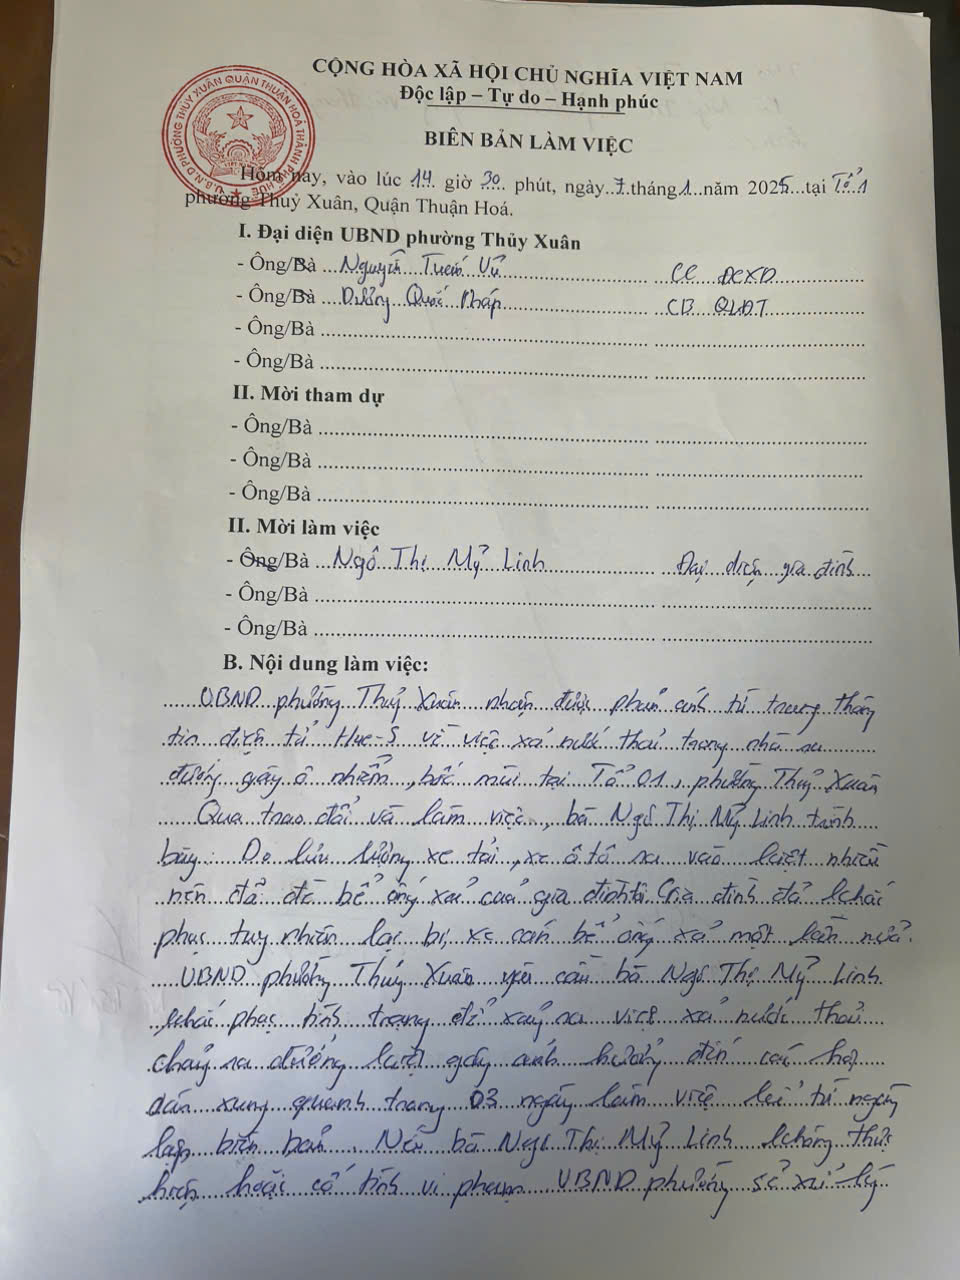 CỘNG HÒA XÃ HỘI CHỦ NGHĨA VIỆT NAM
Độc lập – Tự do – Hạnh phúc
U.B.N.D PHƯỜNG THỦY XUÂN QUẬN THUẬN HOÁ THÀNH PHỐ HUẾ
BIÊN BẢN LÀM VIỆC
Hôm nay, vào lúc 14 giờ 30 phút, ngày 7 tháng 1 năm 2025 tại Tổ 1
phường Thuỷ Xuân, Quận Thuận Hoá.
I. Đại diện UBND phường Thủy Xuân
- Ông/Bà Nguyễn Tuấn Vũ CC ĐCXD
- Ông/Bà Dương Quốc Pháp CB QLĐT
- Ông/Bà
- Ông/Bà
II. Mời tham dự
- Ông/Bà
- Ông/Bà
- Ông/Bà
II. Mời làm việc
- Ông/Bà Ngô Thị Mỹ Linh Đại diện gia đình
- Ông/Bà
- Ông/Bà
B. Nội dung làm việc:
UBND phường Thuỷ Xuân nhận được phản ánh từ trung tâm thông
tin điện tử Hue-S về việc xả nước thải trong nhà ra
đường gây ô nhiễm, bốc mùi tại Tổ 01, phường Thuỷ Xuân
Qua trao đổi và làm việc, bà Ngô Thị Mỹ Linh trình
bày: Do lưu lượng xe tải, xe ô tô ra vào lượt nhiều
nên đã đè bể ống xả của gia đình tôi. Gia đình đã khắc
phục tuy nhiên lại bị xe cán bể ống xả một lần nữa.
UBND phường Thuỷ Xuân yêu cầu bà Ngô Thị Mỹ Linh
khắc phục tình trạng để xảy ra việc xả nước thải
chảy ra đường kiệt gây ảnh hưởng đến các hộ
dân xung quanh trong 03 ngày làm việc kể từ ngày
lập biên bản. Nếu bà Ngô Thị Mỹ Linh không thực
hiện hoặc cố tình vi phạm UBND phường sẽ xử lý